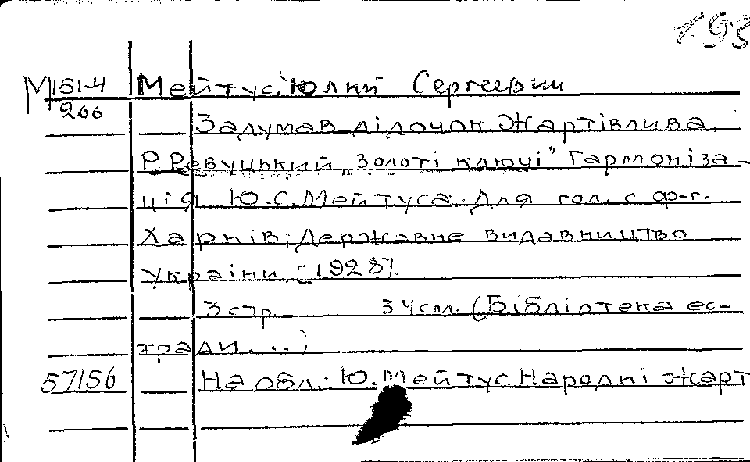 193
М 151-4 Мейтус Юлий Сергеевич
266
Задумав дідочок Жартівлива.
Р. Ревуцький „Золоті ключі" Гармоніза-
ція Ю.С. Мейтуса. Для гол. с ф-п.
Харків: Державне видавництво
України [1928].
3 стр. 34 см. (Бібліотека ес-
тради...)
57156 На обл.: Ю. Мейтус Народні жарт